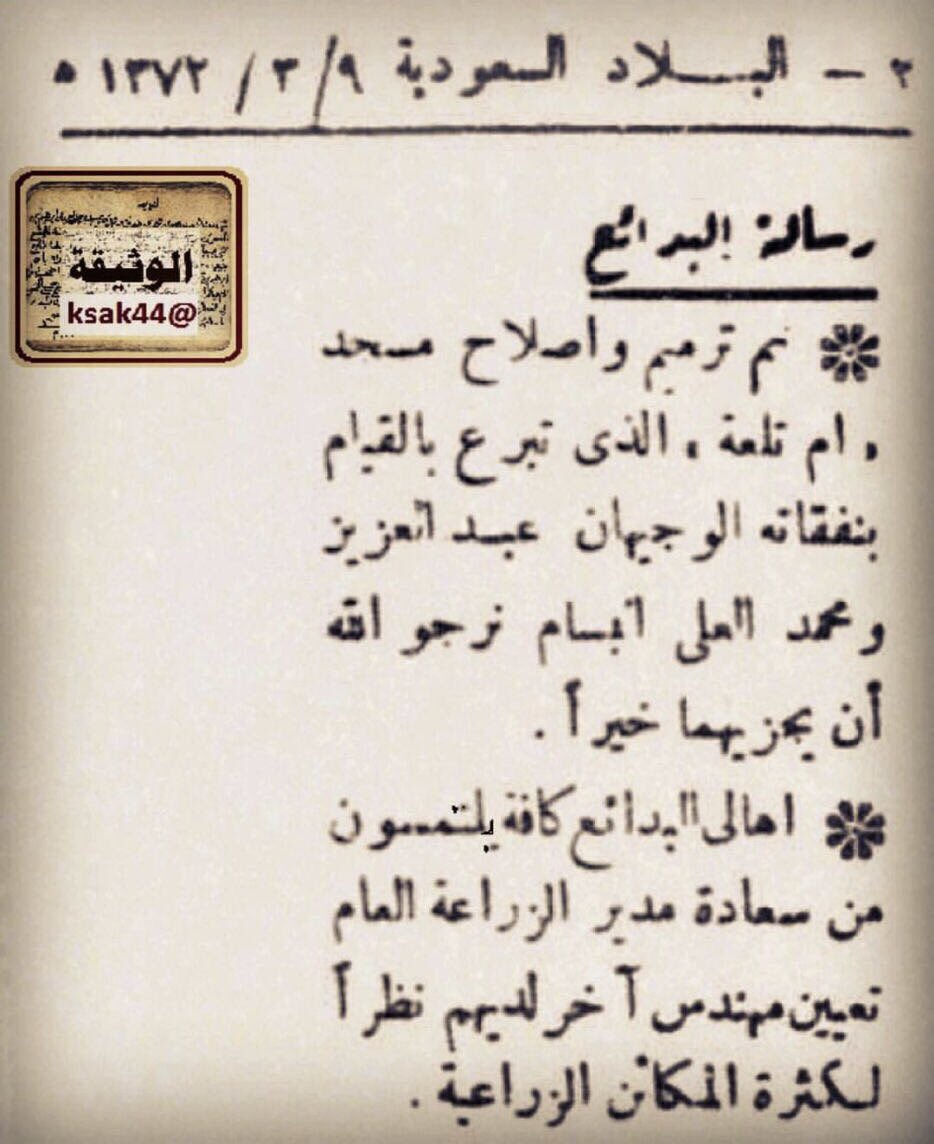 ٢ - البلاد السعودية ٩ / ٣ / ١٣٧٢ ه
الوثيقة
@ksak44
رسالة البدائع
تم ترميم واصلاح مسجد
« ام تلعة » الذى تبرع بالقيام
بنفقاته الوجيهان عبد العزيز
ومحمد العلى البسام نرجو الله
أن يجزيهما خيراً .
اهالى البدائع كافة يلتمسون
من سعادة مدير الزراعة العام
تعيين مهندس آخر لديهم نظراً
لكثرة المكائن الزراعية .